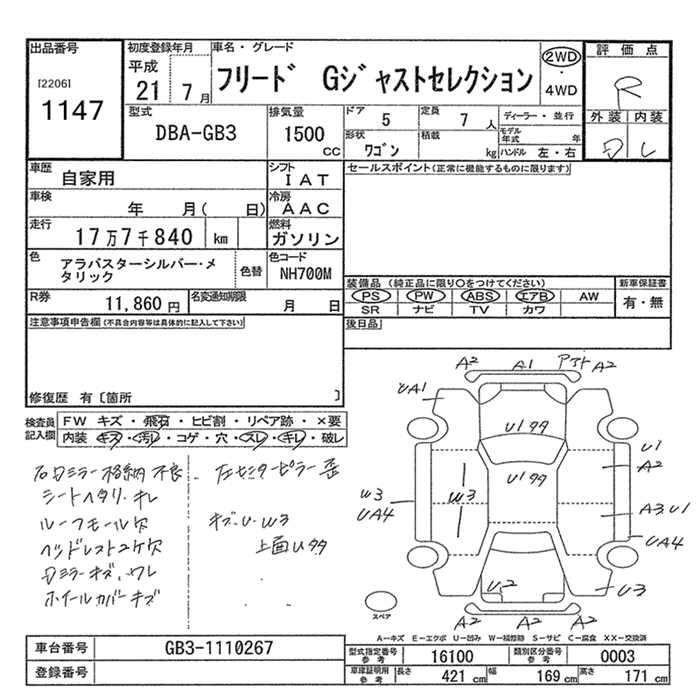 出品番号
[2206]
1147
初度登録年月
平成
21 7月
車名・グレード
フリード Gジャストセレクション
2WD
・
4WD
評価点
R
外装 内装
D L
型式
DBA-GB3
排気量
1500
cc
ドア
5
定員
7 人
ディーラー・並行
形状
ワゴン
積載
kg
モデル年式 年
ハンドル 左・右
車歴
自家用
シフト
IAT
車検
年 月( 日)
冷房
AAC
走行
17万7千840 km
燃料
ガソリン
色
アラバスターシルバー・メタリック
色替
色コード
NH700M
R券
11,860 円
名変通知期限
月 日
セールスポイント(正常に機能するものに限ります)
装備品 (純正品に限り○をつけてください)
PS PW ABS エアB AW
SR ナビ TV カワ
新車保証書
有・無
後日品
注意事項申告欄(不具合内容等は具体的に記入して下さい)
修復歴 有〔箇所 〕
検査員記入欄
FW キズ・飛石・ヒビ割・リペア跡・×要
内装 キズ・汚レ・コゲ・穴・スレ・キレ・破レ
ミラー格納不良
シートヘタリ・キレ
ルーフモール欠
ヘッドレスト2ケ欠
ミラーキズ、ワレ
ホイルカバーキズ
左センターピラー歪
キズ・U・W3
上面Uタタ
A2 A1 A2
UA1
U1タタ
U1
A2
U1タタ
W3
W3
UA4
A3 U1
UA4
U2
U3
A2 A2 A2
スペア
A-キズ E-エクボ U-凹み W-補修跡 S-サビ C-腐食 XX-交換済
車台番号
GB3-1110267
登録番号
型式指定番号
参考
16100
類別区分番号
参考
0003
車庫証明用
参考
長さ
421 cm
幅
169 cm
高さ
171 cm